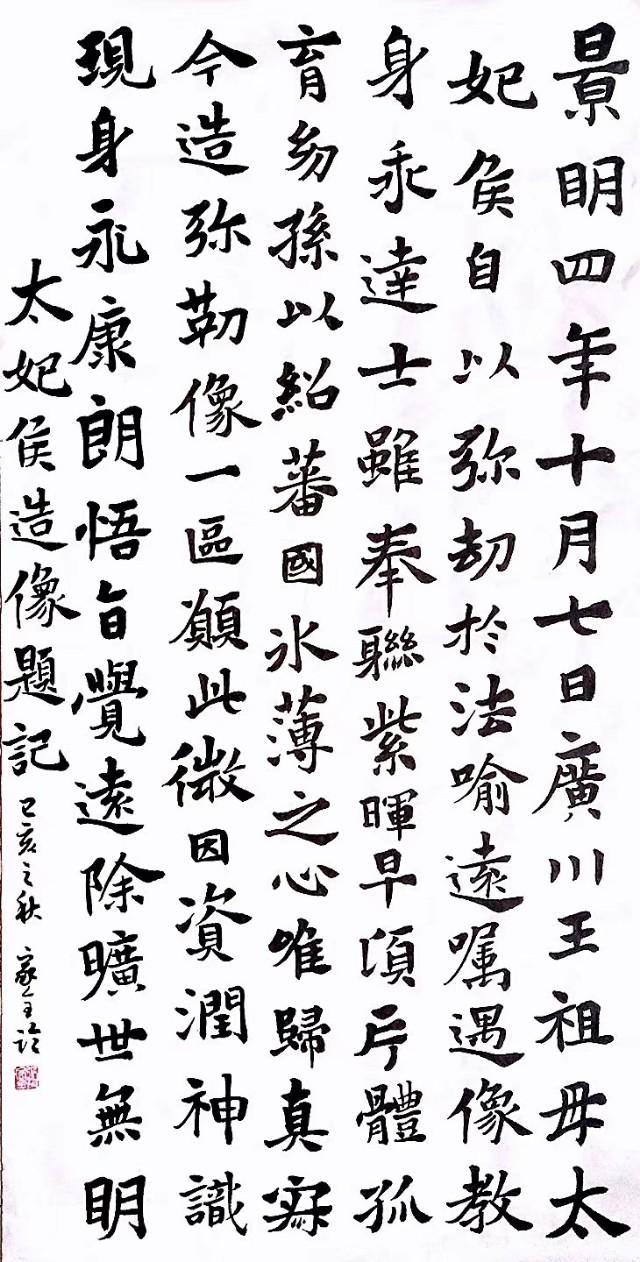 景明四年十月七日廣川王祖母太
妃侯自以弥劫於法喻遠嘱遇像教
身乖達士雖奉聯紫暉早頃片體孤
育幼孫以紹蕃國氷薄之心唯歸真寂
今造弥勒像一區願此微因資潤神識
現身永康朗悟旨覺遠除曠世無明
太妃侯造像題記 己亥之秋